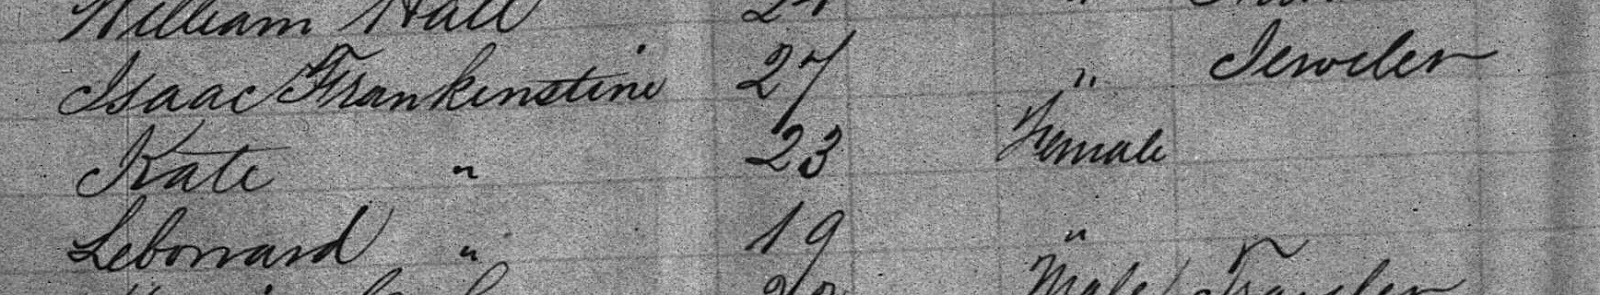 William Hall 24 "
Isaac Frankenstine 27 " Jeweler
Kate " 23 Female
Leborrard " 19 "
Male Traveler